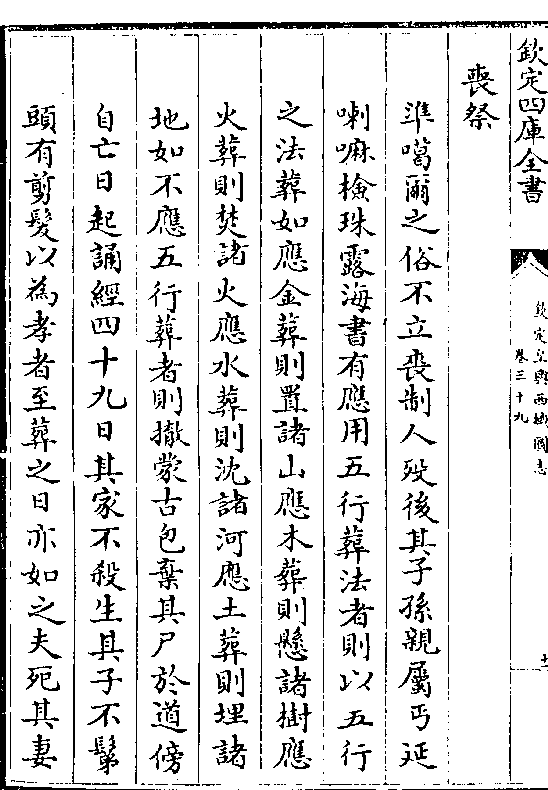 欽定四庫全書
欽定皇輿西域圖志
卷三十九
喪祭
準噶爾之俗不立喪制人歿後其子孫親屬丐延
喇嘛檢珠露海書有應用五行葬法者則以五行
之法葬如應金葬則置諸山應木葬則懸諸樹應
火葬則焚諸火應水葬則沈諸河應土葬則埋諸
地如不應五行葬者則撤蒙古包棄其尸於道傍
自亡日起誦經四十九日其家不殺生其子不鬀
頭有剪髮以為孝者至葬之日亦如之夫死其妻